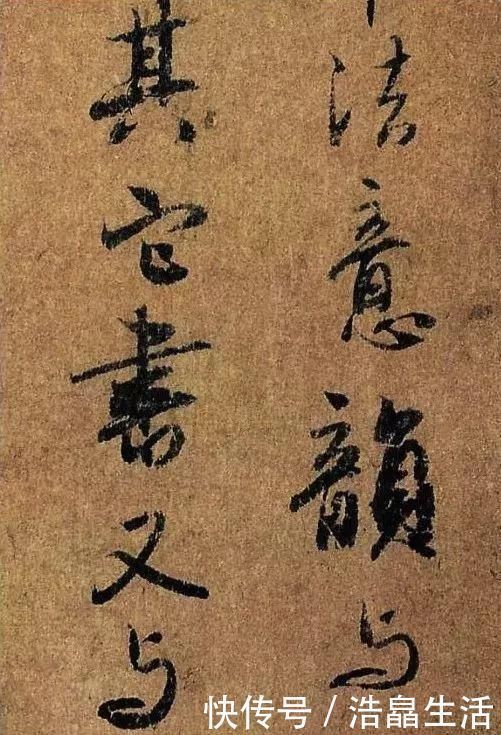 法意韻与
其它書又与
快传号／浩皛生活